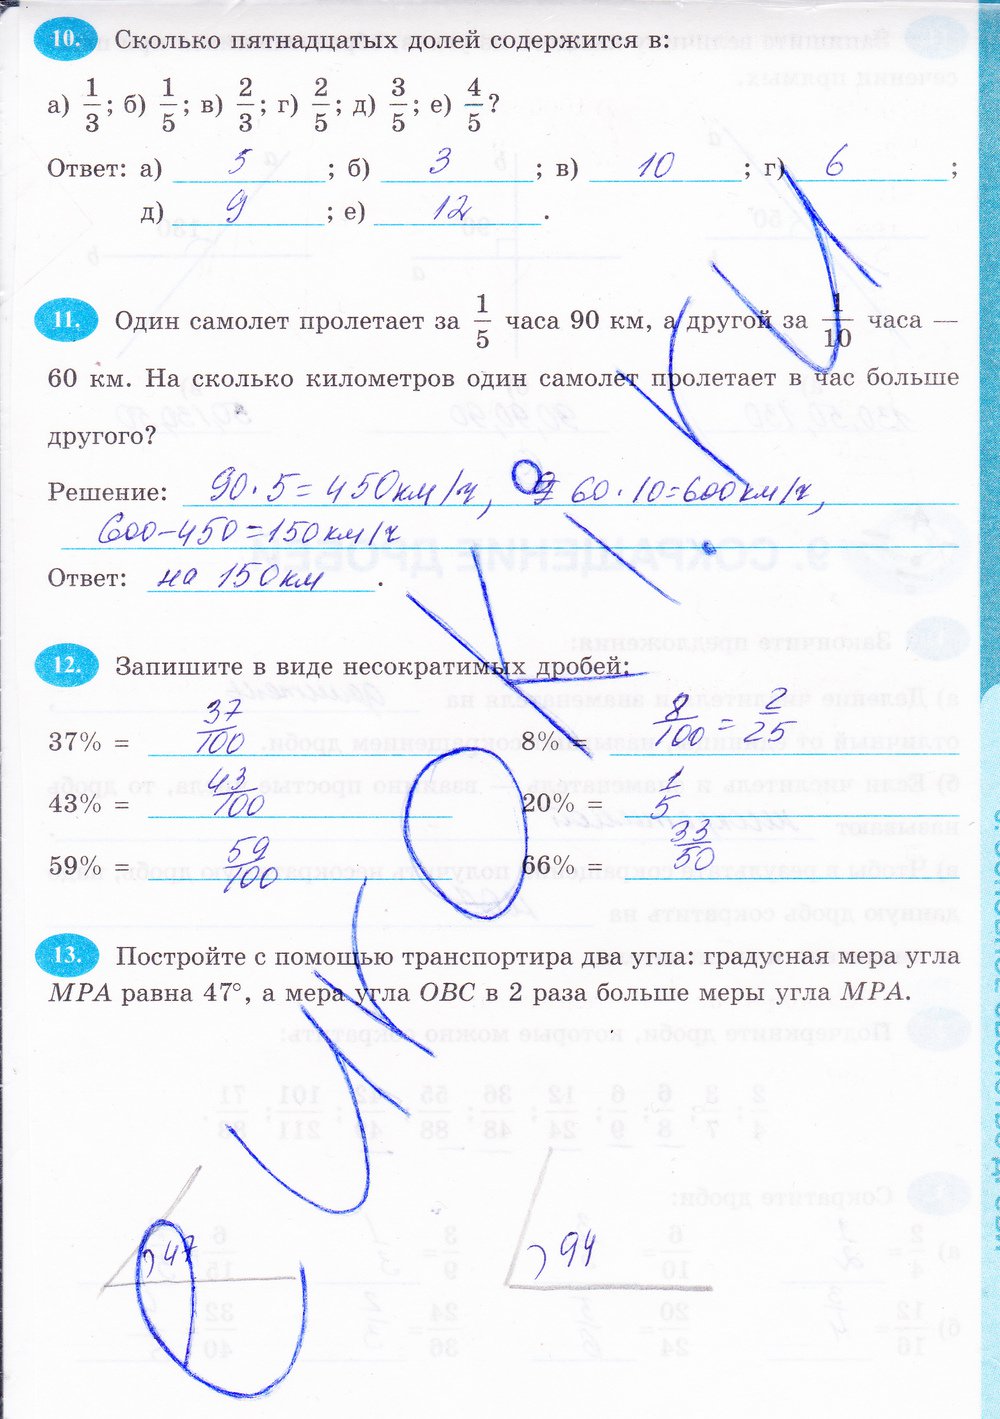 10. Сколько пятнадцатых долей содержится в:
а) 1/3; б) 1/5; в) 2/3; г) 2/5; д) 3/5; е) 4/5?
Ответ: а) 5 ; б) 3 ; в) 10 ; г) 6 ;
д) 9 ; е) 12 .
11. Один самолет пролетает за 1/5 часа 90 км, а другой за 1/10 часа —
60 км. На сколько километров один самолет пролетает в час больше
другого?
Решение: 90·5=450км/ч, 60·10=600км/ч,
600-450=150км/ч
Ответ: на 150км .
12. Запишите в виде несократимых дробей:
37% = 37/100 8% = 8/100 = 2/25
43% = 43/100 20% = 1/5
59% = 59/100 66% = 33/50
13. Постройте с помощью транспортира два угла: градусная мера угла
MPA равна 47°, а мера угла OBC в 2 раза больше меры угла MPA.
47 94